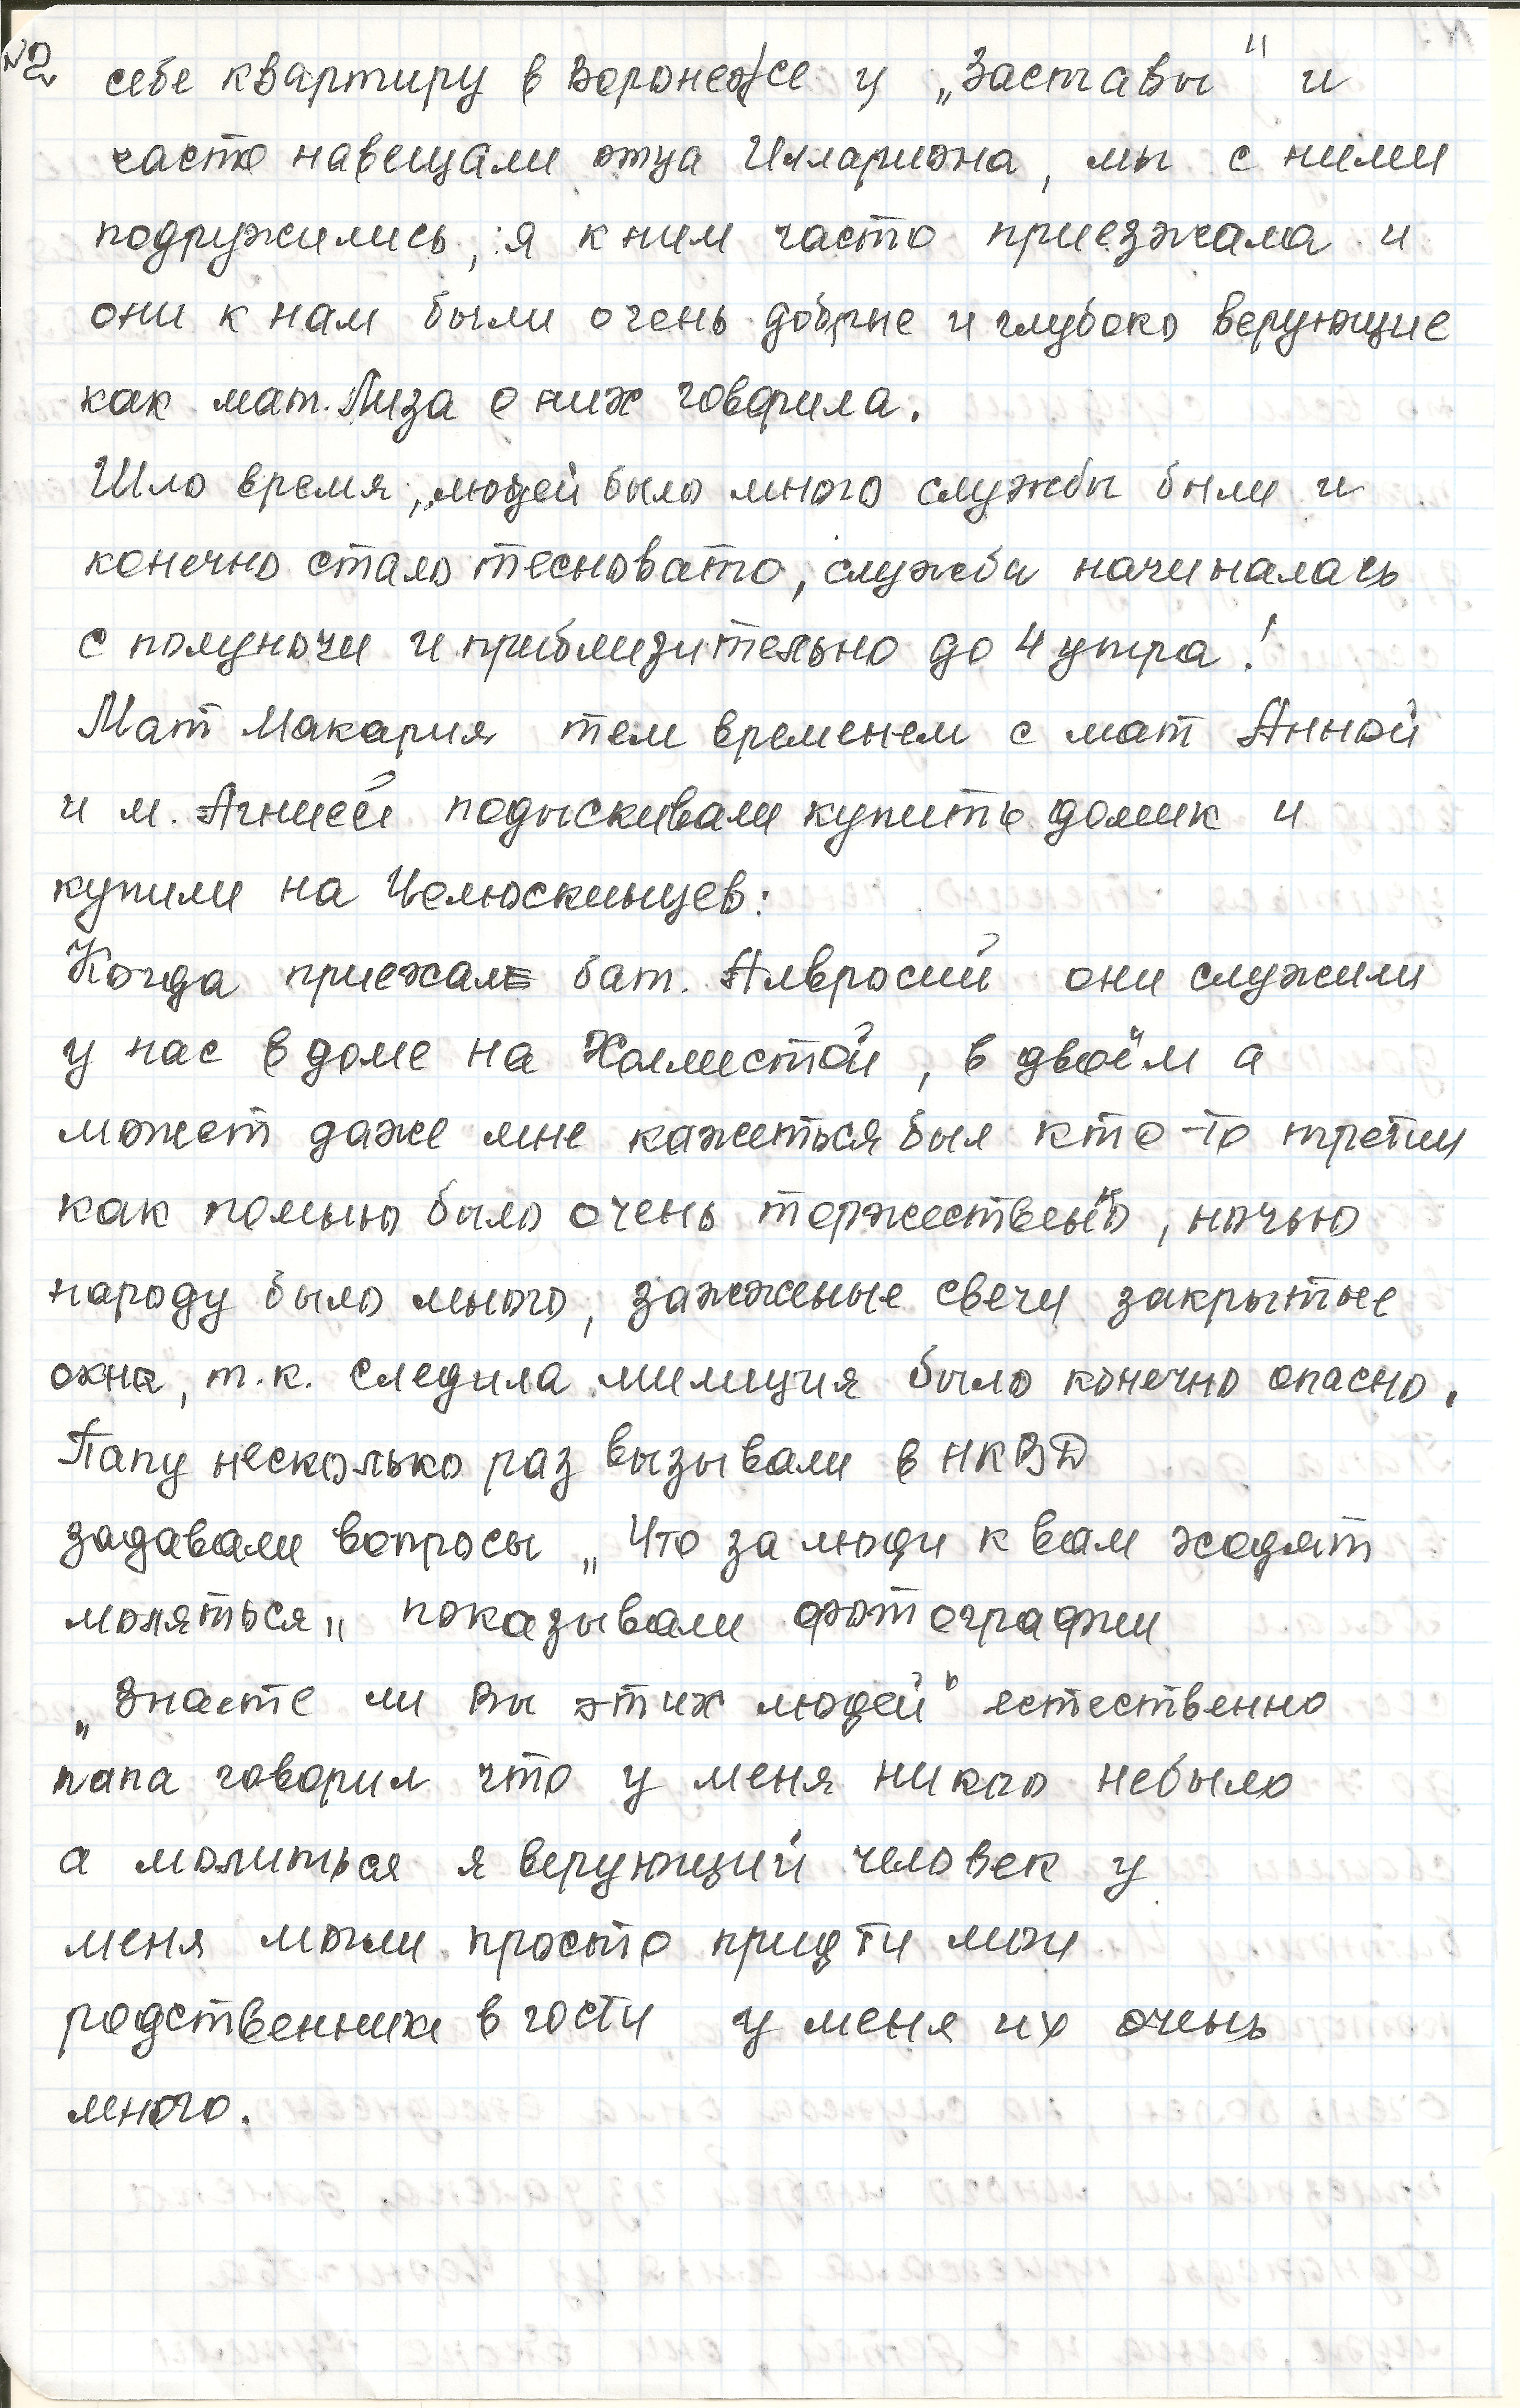 №2
себе квартиру в Воронеже у „Заставы" и
часто навещали отца Иллариона, мы с ними
подружились, я к ним часто приезжала и
они к нам были очень добрые и глубоко верующие
как мат. Лиза о них говорила.
Шло время, людей было много службы были и
конечно стало тесновато, служба начиналась
с полуночи и приблизительно до 4 утра!
Мат Макария тем временем с мат Анной
и м. Агнией подыскивали купить домик и
купили на Челюскинцев:
Когда приежал бат. Амвросий они служили
у нас в доме на Холмистой, в двоём а
может даже мне кажеться был кто-то третий
как помню было очень торжественно, ночью
народу было много, зажжёные свечи закрытые
окна, т.к. следила милиция было конечно опасно.
Папу несколько раз вызывали в НКВД
задавали вопросы „Что за люди к вам ходят
моляться„ показывали фотографии
„Знаете ли Вы этих людей" естественно
папа говорил что у меня никого небыло
а молиться я верующий человек у
меня могли просто придти мои
родственники в гости у меня их очень
много.